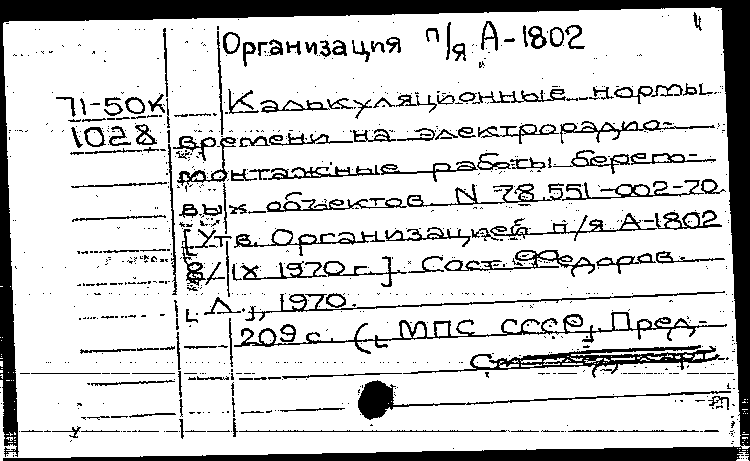 Организация п/я А-1802
71-50К Калькуляционные нормы
1028 времени на электрорадио-
монтажные работы берего-
вых объектов. N 78.551-002-70.
[Утв. Организацией п/я А-1802
8/IX 1970 г.]. Сост.
[Л.], 1970.
209 с. ([МПС СССР]. Пред-
См. след. карт.